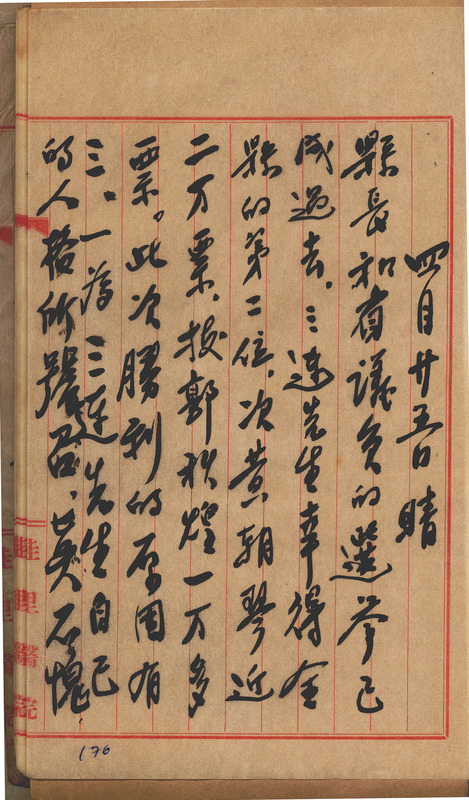 四月廿五日 晴
縣長和省議員的選挙已
成過去、三連先生幸得全
縣的第二位、次黄朝琴近
二万票、揍郭秋煌一万多
票。此次勝利的原因有
三。一為三連先生自己
的人格所號召、莫不愧
佳里醫院
176